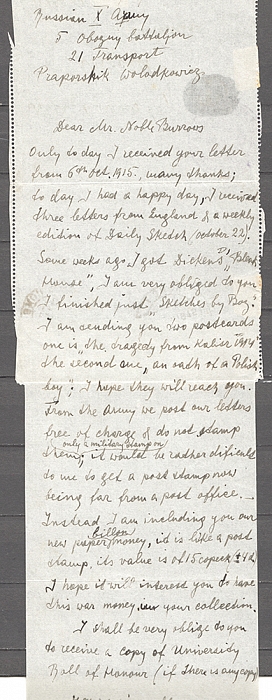 Russian X Army
5 Obozny battalion
21 Transport
Praporshik Woladkowicz
Dear Mr. Noble Burrows
Only to day I received your letter
from 6th oct. 1915. many thanks;
to day I had a happy day, I received
three letters from England & a weekly
edition of Daily Sketch (october 22).
Some weeks ago I got Dickens' "Bleak
House", I am very obliged to you
I finished just "Sketches by Boz".
I am sending you two postcards
one is the tragedy from Kalisz 1914
the "second one, an oath of a Polish
boy". I hope they will reach you.
From the army we post our letters
free of charge & do not stamp
only a military stamp on
them, it would be rather dificult
to me to get a post stamp now
being far from a post office.
Instead I am including you our
new paper billon money, it is like a post
stamp, its value is of 15 copeck
I hope it will interest you to have
this war money in your collection.
I shall be very oblige to you
to receive a copy of University
Roll of Honour (if there is any copy)